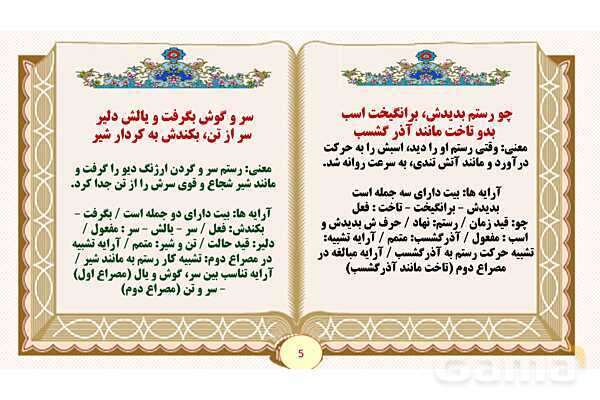 چو رستم بدیدش، برانگیخت اسب
بدو تاخت مانند آذر گشسب
معنی: وقتی رستم او را دید، اسبش را به حرکت
درآورد و مانند آتش تندی، به سرعت روانه شد.
آرایه ها: بیت دارای سه جمله است
بدیدش - برانگیخت - تاخت : فعل
چو: قید زمان / رستم: نهاد / حرف ش بدیدش و
اسب : مفعول / آذرگشسب: متمم / آرایه تشبیه:
تشبیه حرکت رستم به آذرگشسب / آرایه مبالغه در
مصراع دوم (تاخت مانند آذرگشسب)
سر و گوش بگرفت و یالش دلیر
سر از تن، بکندش به کردار شیر
معنی: رستم سر و گردن ارژنگ دیو را گرفت و
مانند شیر شجاع و قوی سرش را از تن جدا کرد.
آرایه ها: بیت دارای دو جمله است / بگرفت -
بکندش: فعل / سر - یالش - سر : مفعول /
دلیر: قید حالت / تن و شیر: متمم / آرایه تشبیه
در مصراع دوم: تشبیه کار رستم به مانند شیر /
آرایه تناسب بین سر، گوش و یال (مصراع اول)
- سر و تن (مصراع دوم)
5
Gama